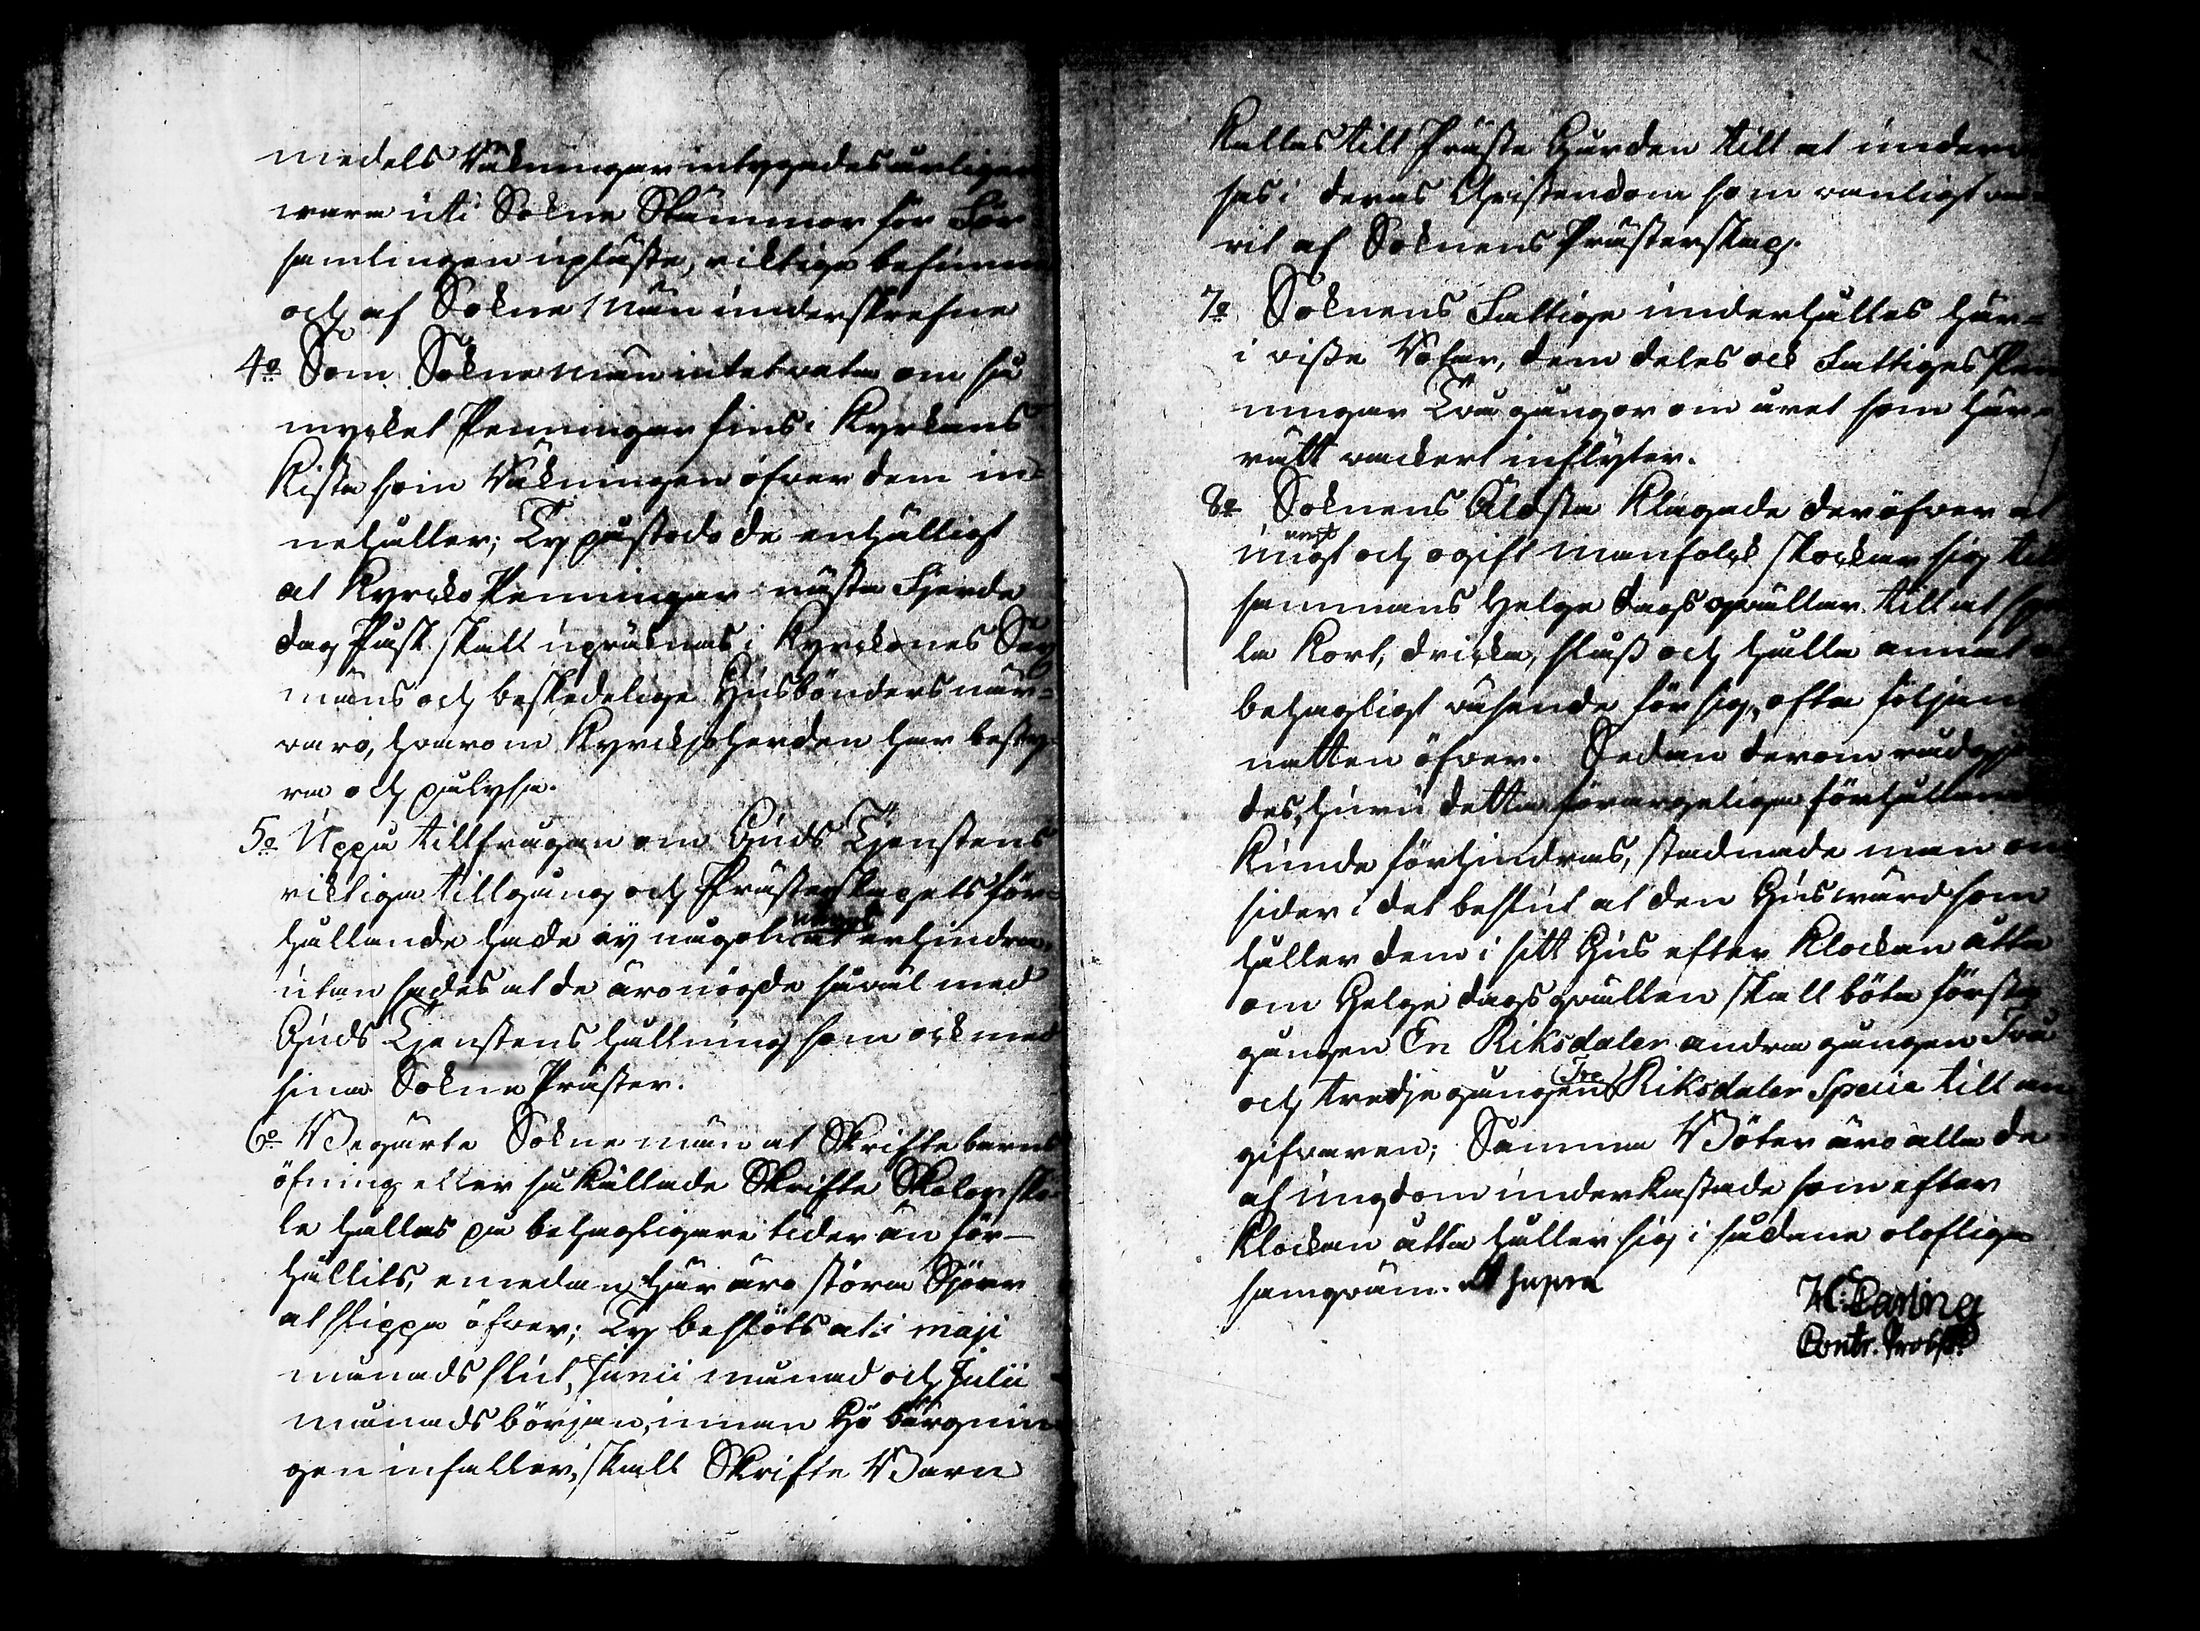 medels Räkningar intygades årligen
wara uti Sokne Stämmor för För
samlingen upläste, riktige befunne
och af Sokne Män underskrefne
4o Som Sokne män intet veta om så
myçket Penningar fins i Kyrkans
Kista som Räkningen öfver dem in=
nehåller; Ty påstodo de enhälligt
at Kyrcko Penningar näste Fjerde
dag Påsk skall upräknas i Kyrckones Sex
mäns och beskedelige Husbönders när=
varo, hvarom Kyrckjoherden har besty=
ra och pålysa.
5o Uppå tillfrågan om Guds Tjenstens
riktiga tillgång och Prästerskapets för=
hållande hade ey något at erhindra,
utan sades at de äro nögde såväl med
Guds Tjenstens hållning som ock med
sina Sokne Präster.
6o Begärte Sokne män at Skrifte barns
öfning eller så kallade Skrifte Skolor sko
la hållas på behagligare tider än för—
hållits, emedan här äro stora Sjöar
at slippa öfver; Ty beslöts at i maji
månads slut, Junii månad och Julii
månads början, innan Hö bärgnin
gen infaller, skall Skrifte Barn
Kallas till Präste Gården till at underv
sas i deras Christendom som vanligt va=
rit af Soknens Prästerskap.
7o Soknens Fattige underhålles här=
i visse Rotar, dem deles ock Fattiges Pen
ningar Två gångor om året som här=
rätt vackert inflyter.
8o Soknens Äldsta Klagade deröfver at
ungt och ogift manfolk skockar sig till
sammans Helge dags qvällar till at spe
la Kort, dricka, slåss och hålla annat o
behagligt väsende för sig, ofta följan
natten öfver. Sedan derom rådgjor
des, huru detta förargeliga förhålland
Kunde förhindras, stadnade man om
sider i det beslut at den Huswärd som
håller dem i sitt Hus efter Klockan åtta
om Helge dags qvällen skall böta första
gången En Riksdaler andra gången Två
och tredje gången Tre Riksdaler Specie till an
gifvaren; Samma Böter äro alla de
af ungdom underkastade som efter
Klockan åtta håller sig i sådana olofliga
samqväm. Ut supra
Contr. Probst